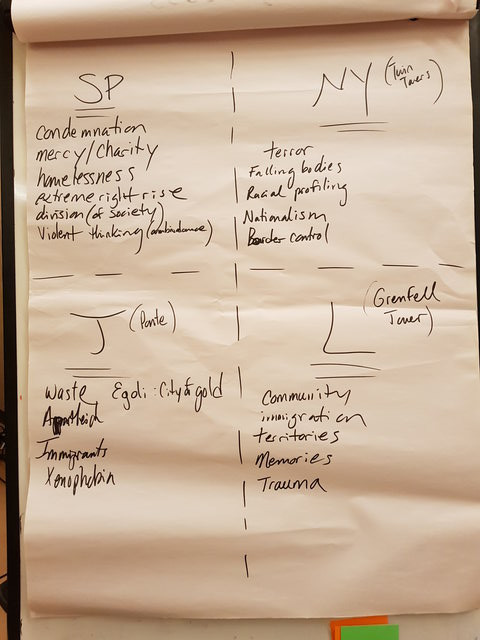 SP
condemnation
mercy/charity
homelessness
extreme right rise
division (of society)
Violent thinking (ambivalence)
NY (Twin
Towers)
terror
Falling bodies
Racial profiling
Nationalism
Border control
J (Ponte)
Waste Egoli: City of gold
Apartheid
Immigrants
Xenophobia
L (Grenfell
Tower)
Community
immigration
territories
Memories
Trauma